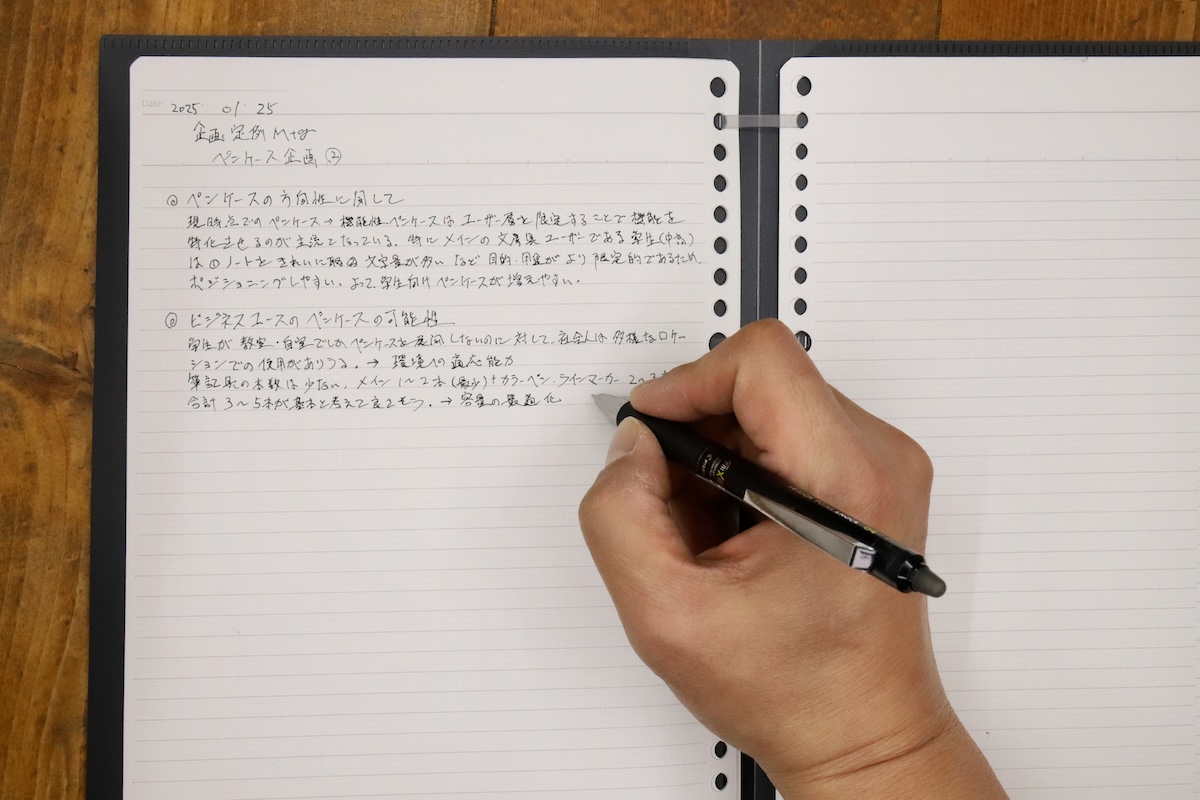 Date 2025 01 25
企画定例Mtg
ペンケース企画②
◎ ペンケースの方向性に関して
現時点でのペンケース→機能性ペンケースはユーザー層を限定することで機能を
特化させるのが主流となっている。特にメインの文房具ユーザーである学生(中高)
は①ノートをきれいに取る②文字量が多いなど目的・用途がより限定的であるため、
ポジショニングしやすい。よって、学生向けペンケースが増えやすい。
◎ ビジネスユースのペンケースの可能性
学生が教室・自室でしかペンケースを展開しないのに対して、社会人は多様なロケー
ションでの使用がありうる。→ 環境への適応能力
筆記具の本数は少ない。メイン1〜2本(最少)+カラーペン・ラインマーカー 2〜3
合計3〜5本が基本と考えて良さそう。→ 容量の最適化
FRIXION